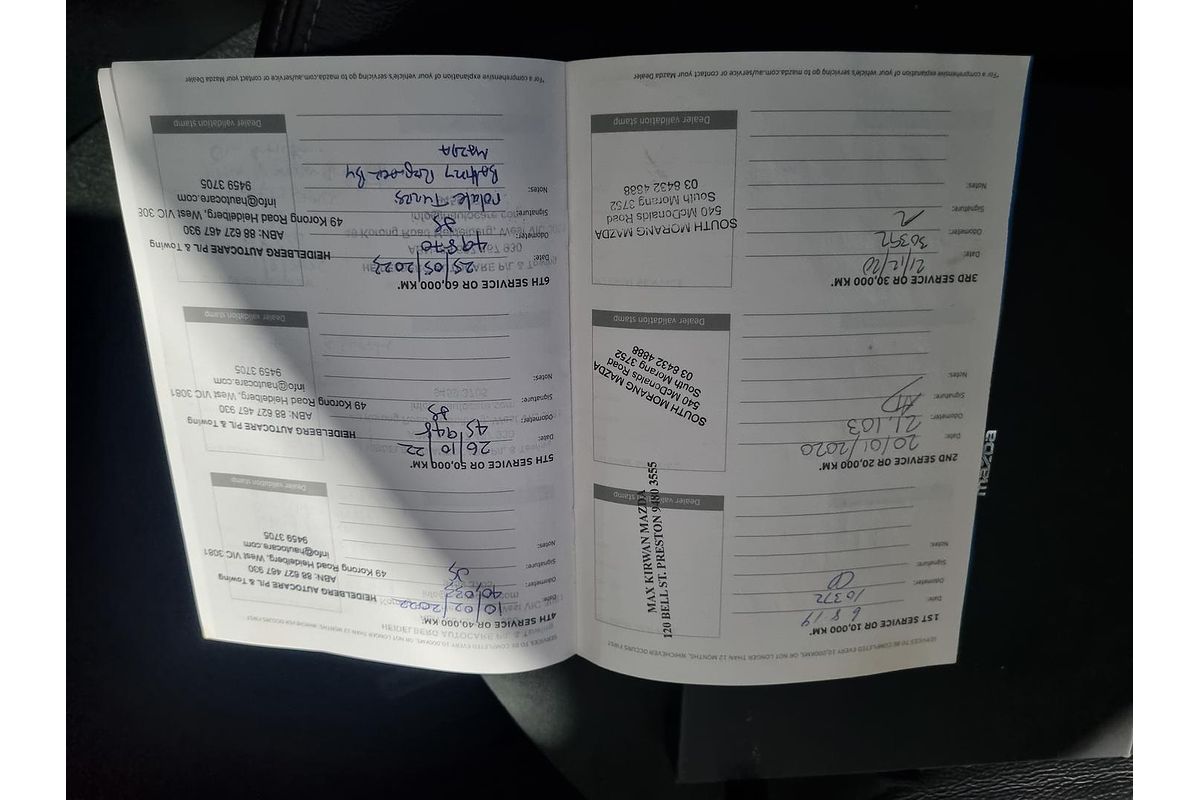 SERVICES TO BE COMPLETED EVERY 10,000KMS, OR NOT LONGER THAN 12 MONTHS, WHICHEVER OCCURS FIRST
1ST SERVICE OR 10,000 KM*
Date: 6 8 19
Odometer: 10372
Signature:
Notes:
Dealer validation stamp
MAX KIRWAN MAZDA
120 BELL ST. PRESTON 9480 3555
2ND SERVICE OR 20,000 KM*
Date: 20/01/2020
Odometer: 21,103
Signature:
Notes:
Dealer validation stamp
SOUTH MORANG MAZDA
540 McDonalds Road
South Morang 3752
03 8432 4888
3RD SERVICE OR 30,000 KM*
Date: 21/12/20
Odometer: 30392
Signature:
Notes:
Dealer validation stamp
SOUTH MORANG MAZDA
540 McDonalds Road
South Morang 3752
03 8432 4888
*For a comprehensive explanation of your vehicle's servicing go to mazda.com.au/service or contact your Mazda Dealer
SERVICES TO BE COMPLETED EVERY 10,000KMS, OR NOT LONGER THAN 12 MONTHS, WHICHEVER OCCURS FIRST
HEIDELBERG AUTOCARE P/L & Towing
4TH SERVICE OR 40,000 KM*
Date: 10/02/2022
Odometer:
Signature:
Notes:
Dealer validation stamp
HEIDELBERG AUTOCARE P/L & Towing
ABN: 88 627 467 930
49 Korong Road Heidelberg, West VIC 3081
info@hautocare.com
9459 3705
5TH SERVICE OR 50,000 KM*
Date: 26/10/22
Odometer: 45948
Signature:
Notes:
Dealer validation stamp
HEIDELBERG AUTOCARE P/L & Towing
ABN: 88 627 467 930
49 Korong Road Heidelberg, West VIC 3081
info@hautocare.com
9459 3705
6TH SERVICE OR 60,000 KM*
Date: 25/05/2023
Odometer: 49870
Signature:
Notes: rotate Tyres
Battery Replaced By
MAZDA
Dealer validation stamp
HEIDELBERG AUTOCARE P/L & Towing
ABN: 88 627 467 930
49 Korong Road Heidelberg, West VIC 308
info@hautocare.com
9459 3705
*For a comprehensive explanation of your vehicle's servicing go to mazda.com.au/service or contact your Mazda Dealer